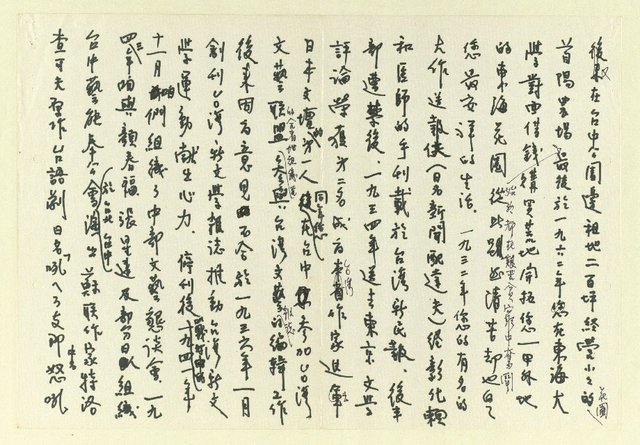 後來又在台中公園邊租地二百坪經營小小的花園
首陽農場最後於一九六二年您在東海大
學對面借錢購買荒地開拓您一甲外地
的東海花園從此歸清苦却也自
您最安祥的生活。一九三二年您的有名的
大作送報伕(日名新聞配達夫)經彰化賴
和医師的手刊載於台湾新民報、後半
部遭禁後、一九三四年送去東京文學
評論學獲第二名成為台湾作家進軍
日本文壇的第一人 同年您在台中參加台湾
文藝聯盟 參與台湾文藝的編輯工作
後來因為意見不合於一九三六年一月
創刊台湾新文學雜誌推動台湾新文
學運動獻出心力。停刊後一九四一年
十二月 咱們組織了中部文藝懇談會一九
四三年咱與顏春福張星建及部分日人組織
台中藝能奉公會演出蘇联作家特洛
查可夫原作台語劇日名「吼へろ支那」怒吼